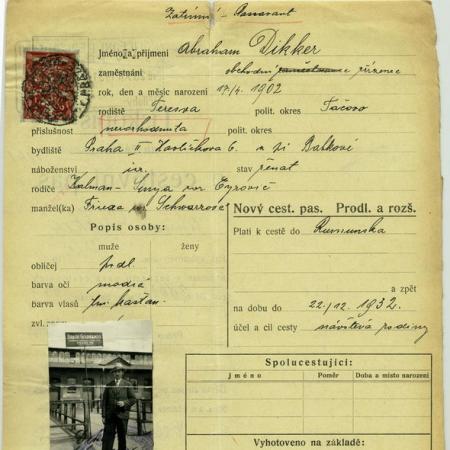 Zatímní Passavant
Jméno a příjmení Abraham Dikker
zaměstnání obchodní zaměstnanec zřízenec
rok, den a měsíc narození 17/4. 1902
rodiště Teresva polit. okres Tačovo
příslušnost nerozhodnuta polit. okres
bydliště Praha II Havlíčkova 6. u pí Balkové
náboženství izr. stav ženat
rodiče Kalman - Surya roz.
manžel(ka) Frieda roz. Schwarzová
Popis osoby:
muže ženy
obličej podl.
barva očí modré
barva vlasů tm. kaštan.
zvl.
Nový cest. pas. Prodl. a rozš.
Platí k cestě do Rumunska
a zpět
na dobu do 22./12. 1932.
účel a cíl cesty návštěva rodiny
Spolucestující:
jméno Poměr Doba a místo narození
Vyhotoveno na základě: